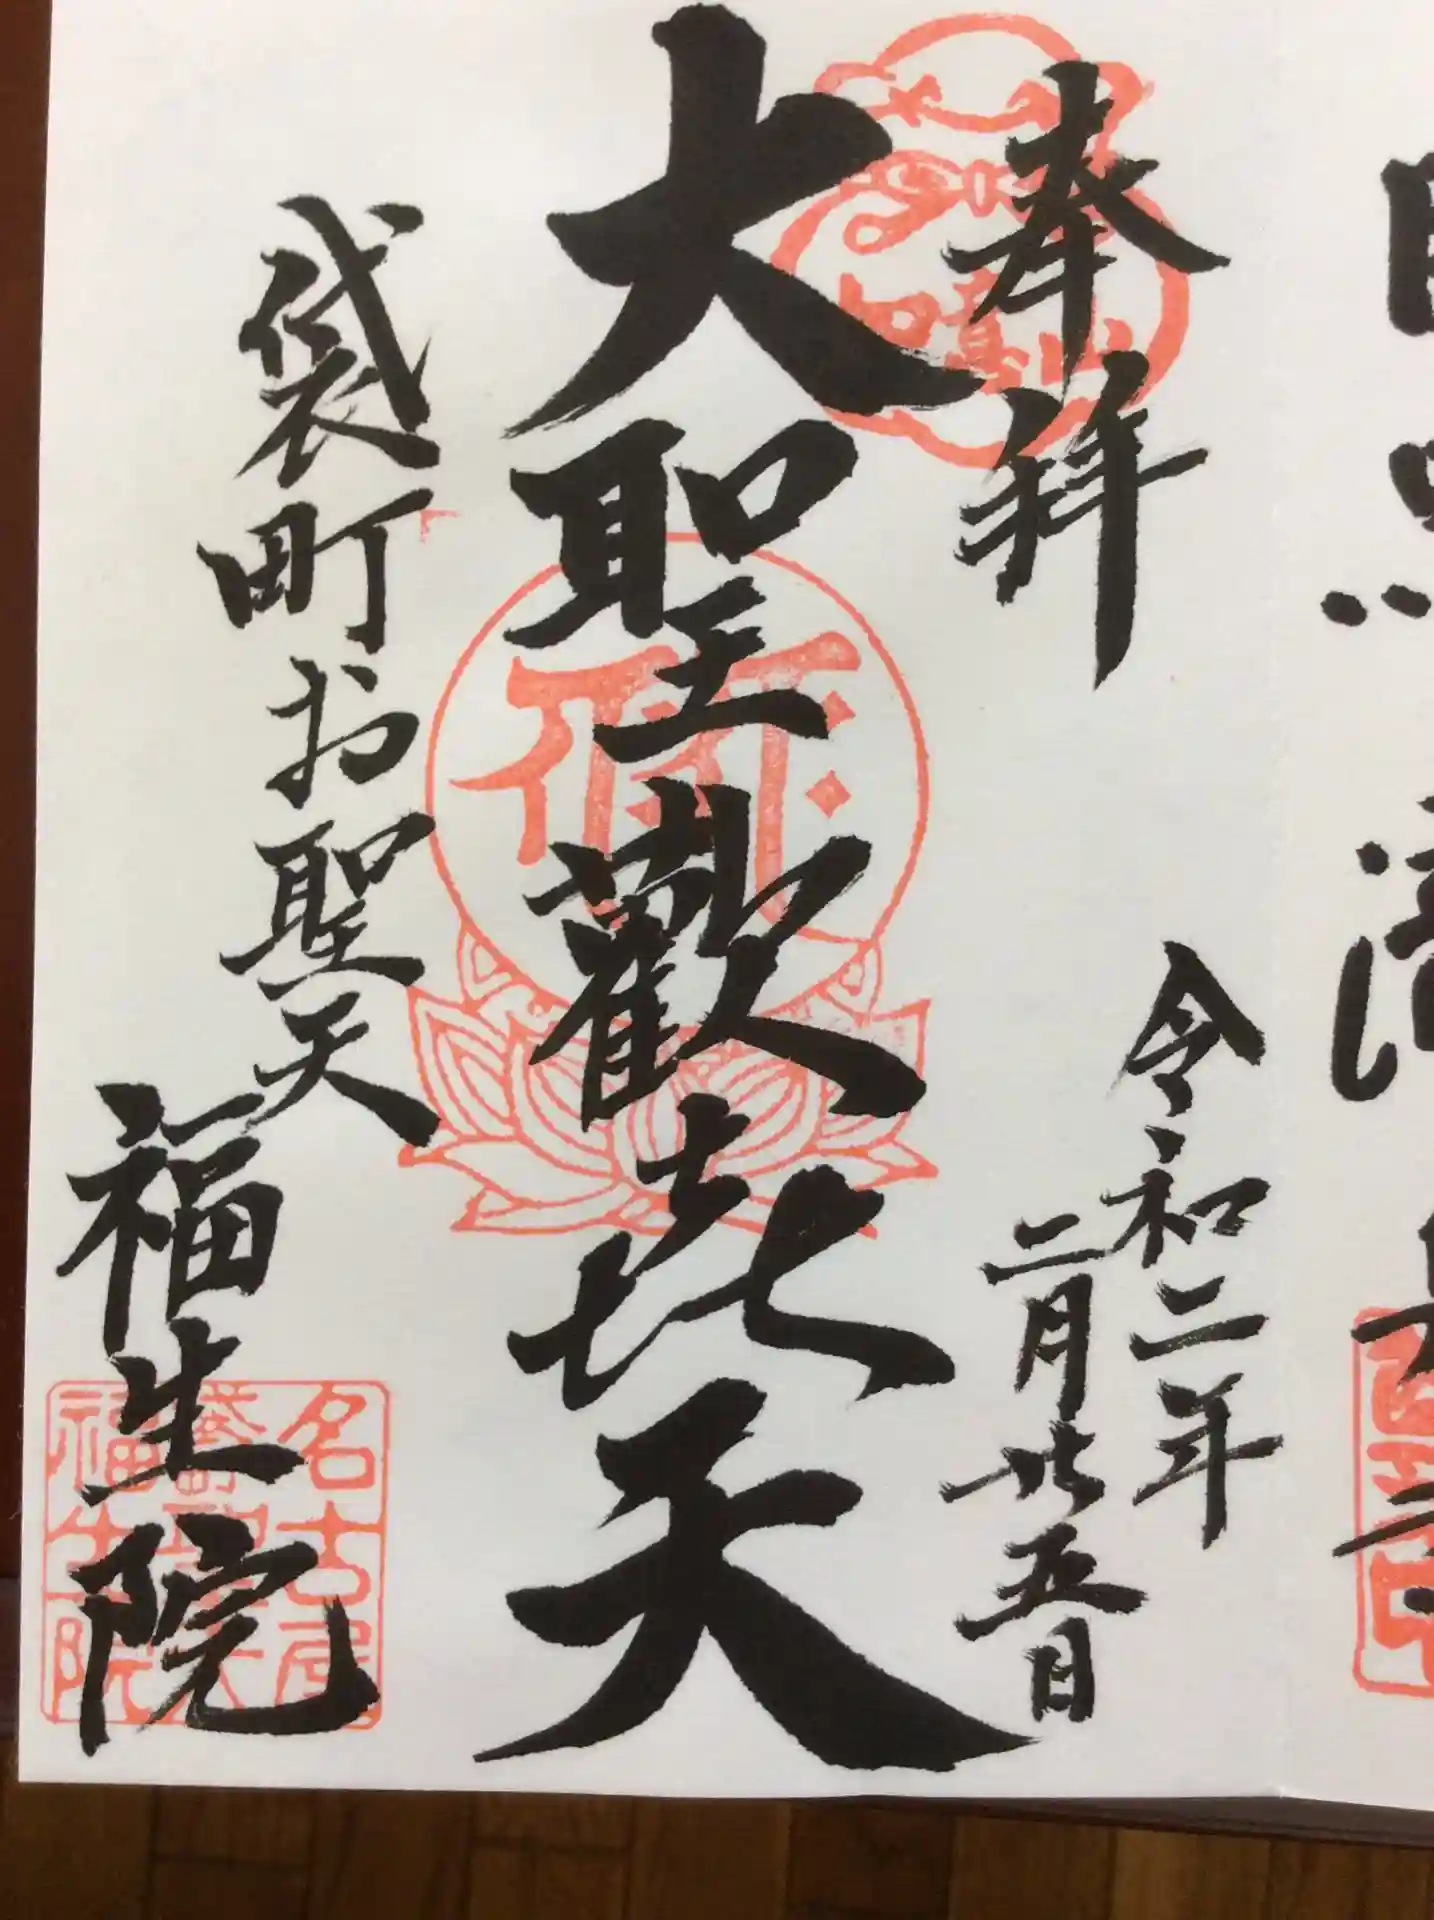 奉拝
令和二年
二月廿五日
大聖歡㐂天
袋町お聖天
福生院
如意山
名古屋
福生院